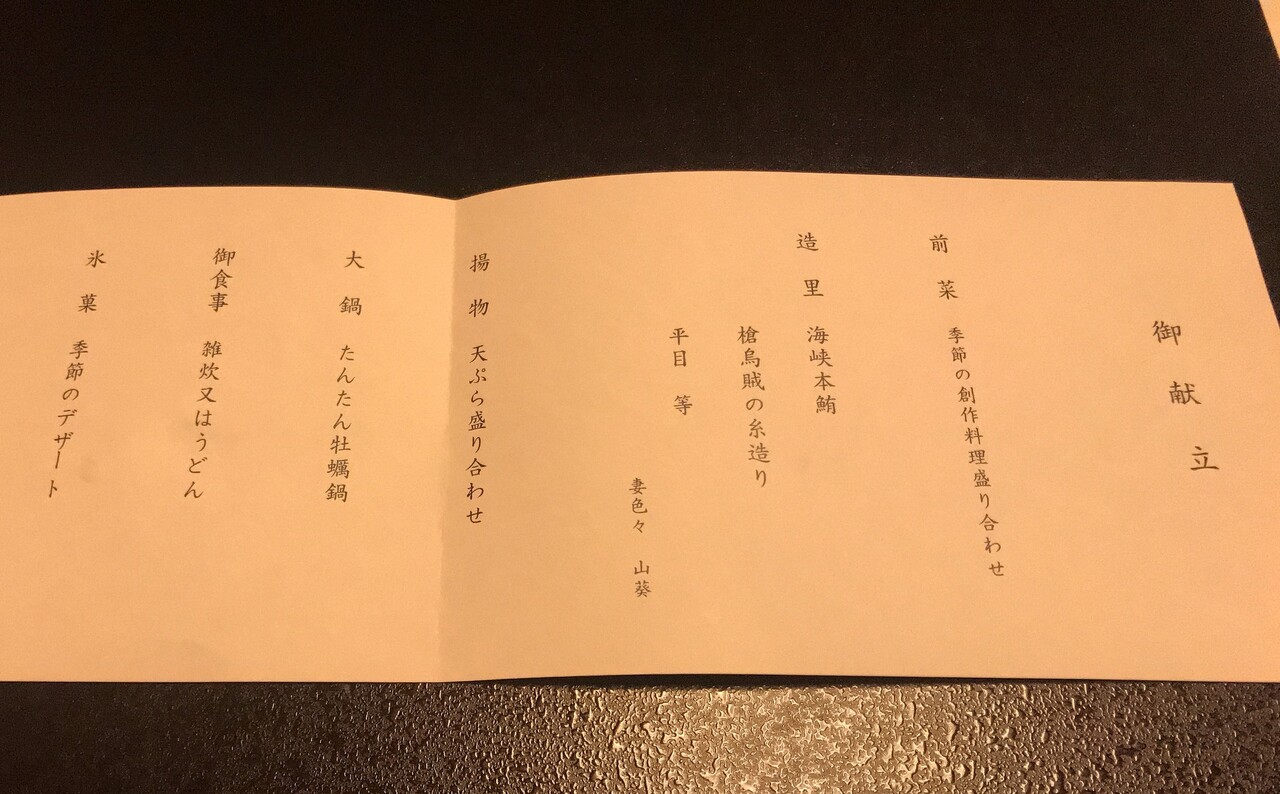 御献立
前菜 季節の創作料理盛り合わせ
造里 海峡本鮪
槍烏賊の糸造り
平目 等
妻色々 山葵
揚物 天ぷら盛り合わせ
大鍋 たんたん牡蠣鍋
御食事 雑炊又はうどん
氷菓 季節のデザート